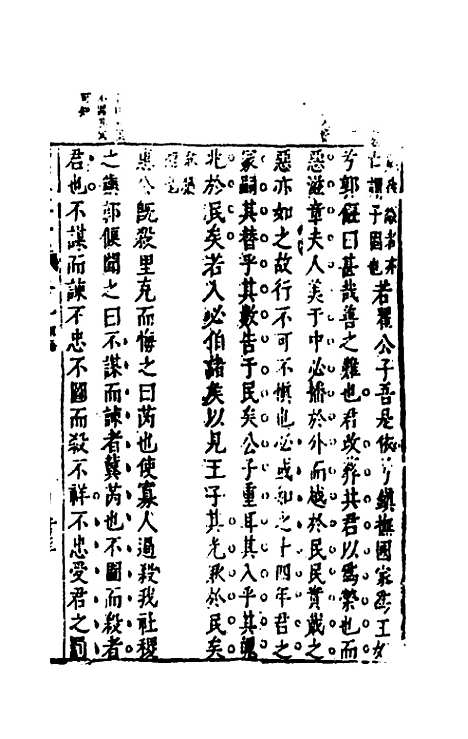 若翟公子吾是依兮鎮撫國家為王妃
兮郭偃曰甚哉善之難也君改葬其君以為榮也而
惡滋章夫人美于中必播於外而越於民民實戴之
惡亦如之故行不可不慎也必或知之十四年君之
冢嗣其替乎其數告于民矣公子重耳其入乎其魄
兆於民矣若入必伯諸矣以見王子其光耿於民矣
惠公既殺里克而悔之曰芮也使寡人過殺我社稷
之鎮郭偃聞之曰不謀而諫者冀芮也不圖而殺者
君也不謀而諫不忠不圖而殺不祥不忠受君之罰